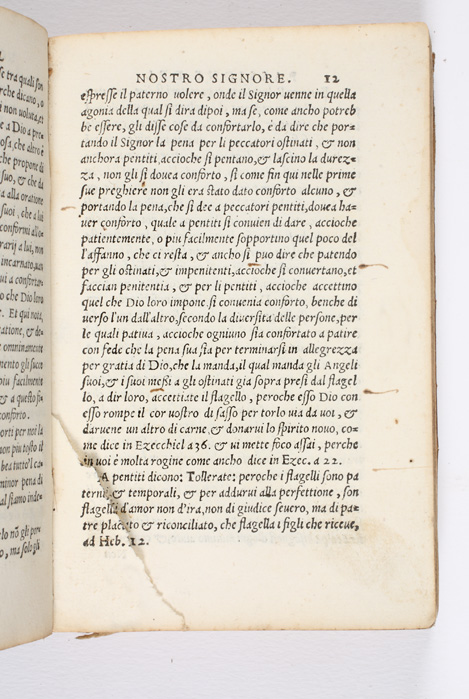 NOSTRO SIGNORE. 12
espresse il paterno uolere, onde il Signor uenne in quella
agonia della qual si dira dipoi, ma se, come ancho potreb
be essere, gli disse cose da confortarlo, è da dire che por-
tando il Signor la pena per li peccatori ostinati, & non
anchora pentiti, accioche si pentano, & lascino la durez-
za, non gli si douea conforto, si come fin qui nelle prime
sue preghiere non gli era stato dato conforto alcuno, &
portando la pena, che si dee a peccatori pentiti, douea ha-
uer conforto, quale a pentiti si conuien di dare, accioche
patientemente, o piu facilmente sopportino quel poco del
l'affanno, che ci resta, & ancho si puo dire che patendo
per gli ostinati, & impenitenti, accioche si conuertano, et
faccian penitentia, & per li pentiti, accioche accettino
quel che Dio loro impone si conuenia conforto, benche di
uerso l'un dall'altro, secondo la diuersita delle persone, per
le quali patiua, accioche ogniuno stia confortato a patire
con fede che la pena sua sta per terminarsi in allegrezza
per gratia di Dio, che la manda, il qual manda gli Angeli
suoi, & i suoi messi a gli ostinati gia sopra presi dal flagel
lo, a dir loro, accettiate il flagello, peroche esso Dio con
esso rompe il cor uostro di sasso per torlo uia da uoi, &
daruene un altro di carne, & donarui lo spirito nouo, co-
me dice in Ezecchiel a 36. & ui mette foco assai, perche
in uoi è molta rogine come ancho dice in Ezec. a 22.
A pentiti dicono: Tollerate: peroche i flagelli sono pa
terni, & temporali, & per addurui alla perfettione, son
flagella d'amor non d'ira, non di giudice seuero, ma di pa-
tre placato & riconciliato, che flagella i figli che riceue,
ad Heb. 12.